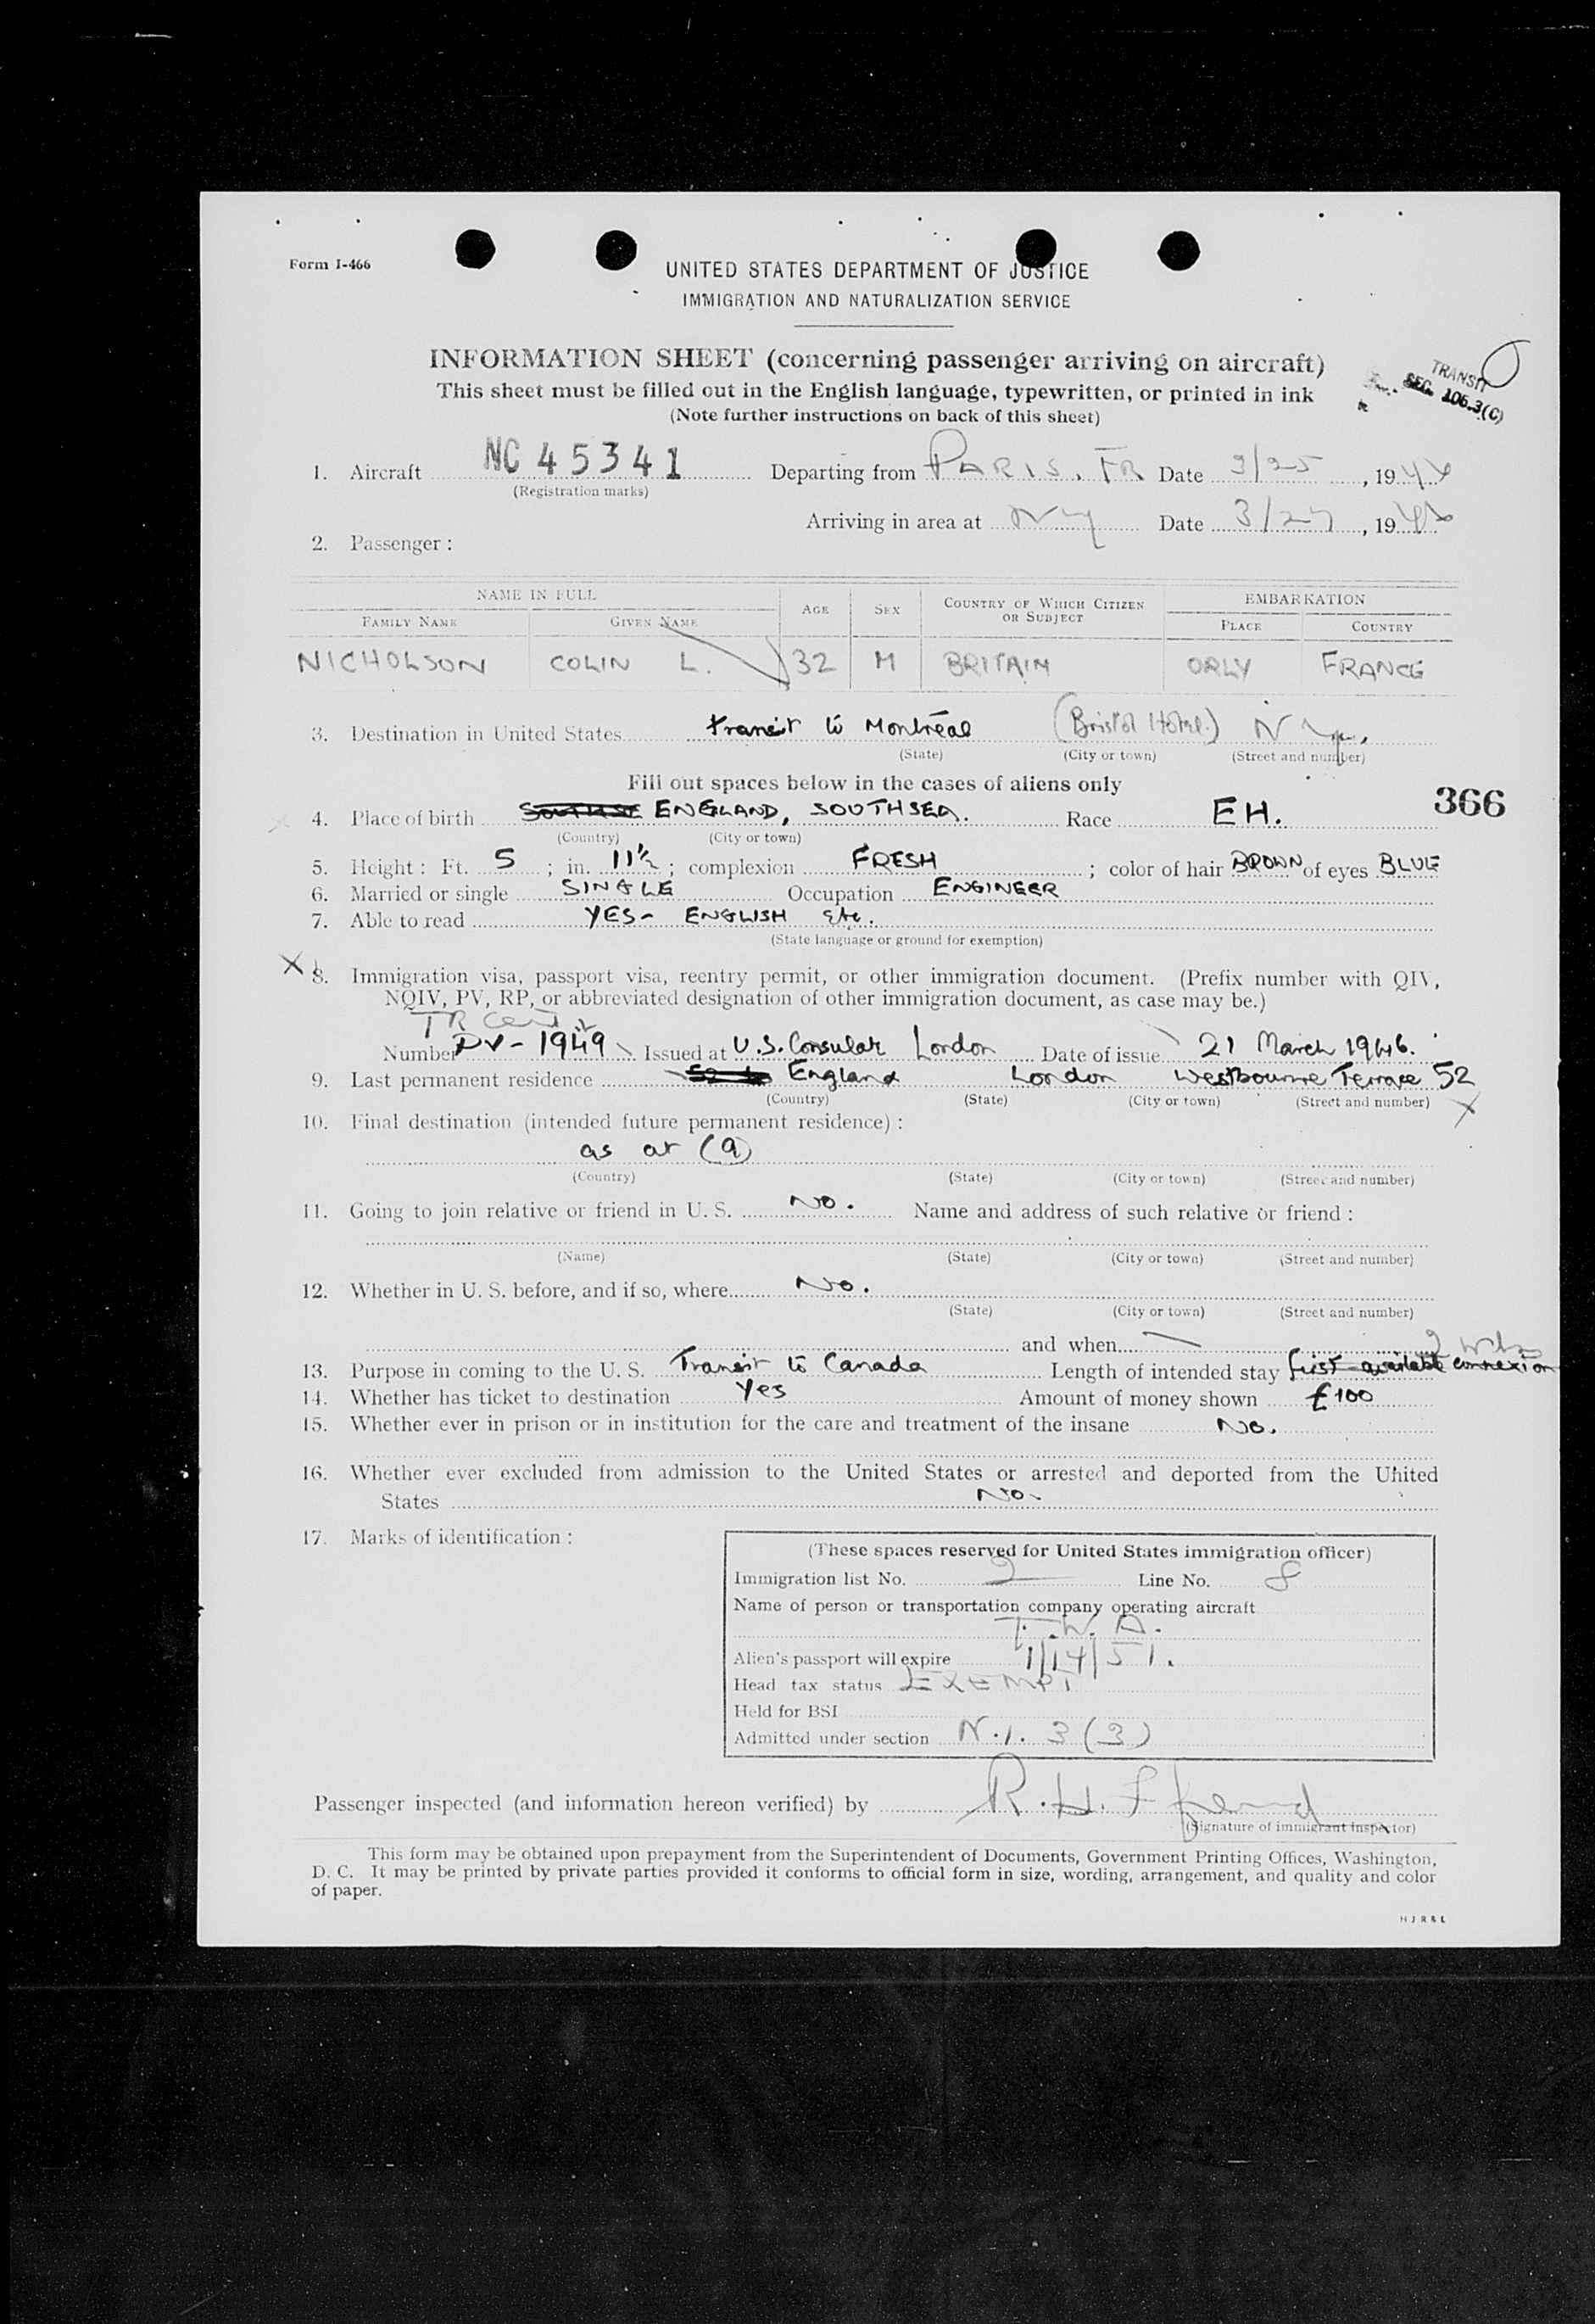 Form I-466
UNITED STATES DEPARTMENT OF JUSTICE
IMMIGRATION AND NATURALIZATION SERVICE
INFORMATION SHEET (concerning passenger arriving on aircraft)
This sheet must be filled out in the English language, typewritten, or printed in ink
(Note further instructions on back of this sheet)
TRANSIT
SEC. 106.3(C)
1. Aircraft NC 45341 Departing from PARIS, FR Date 3/25, 1946
(Registration marks)
Arriving in area at NY Date 3/27, 1946
2. Passenger:
NAME IN FULL AGE SEX COUNTRY OF WHICH CITIZEN OR SUBJECT EMBARKATION
FAMILY NAME GIVEN NAME PLACE COUNTRY
NICHOLSON COLIN L. 32 M BRITAIN ORLY FRANCE
3. Destination in United States transit to Montréal (Bristol Hotel.) N Y.
(State) (City or town) (Street and number)
Fill out spaces below in the cases of aliens only
366
4. Place of birth ENGLAND, SOUTHSEA. Race EH.
(Country) (City or town)
5. Height: Ft. 5; in. 11½; complexion FRESH; color of hair BROWN of eyes BLUE
6. Married or single SINGLE Occupation ENGINEER
7. Able to read YES - ENGLISH etc.
(State language or ground for exemption)
X 8. Immigration visa, passport visa, reentry permit, or other immigration document. (Prefix number with QIV,
NQIV, PV, RP, or abbreviated designation of other immigration document, as case may be.)
TR Cert
Number PV - 1949 Issued at U.S. Consular London Date of issue 21 March 1946.
9. Last permanent residence England London Westbourne Terrace 52
(Country) (State) (City or town) (Street and number) X
10. Final destination (intended future permanent residence):
as at (9)
(Country) (State) (City or town) (Street and number)
11. Going to join relative or friend in U. S. No. Name and address of such relative or friend:
(Name) (State) (City or town) (Street and number)
12. Whether in U. S. before, and if so, where No.
(State) (City or town) (Street and number)
and when — 2 wks
13. Purpose in coming to the U. S. Transit to Canada Length of intended stay first available connexion
14. Whether has ticket to destination Yes Amount of money shown £100
15. Whether ever in prison or in institution for the care and treatment of the insane No.
16. Whether ever excluded from admission to the United States or arrested and deported from the United
States No.
17. Marks of identification:
(These spaces reserved for United States immigration officer)
Immigration list No. 2 Line No. 8
Name of person or transportation company operating aircraft
T.W.A.
Alien's passport will expire 1/14/51.
Head tax status EXEMPT
Held for BSI
Admitted under section N.I. 3(3)
Passenger inspected (and information hereon verified) by R.H.
(Signature of immigrant inspector)
This form may be obtained upon prepayment from the Superintendent of Documents, Government Printing Offices, Washington,
D. C. It may be printed by private parties provided it conforms to official form in size, wording, arrangement, and quality and color
of paper.
H J R & L